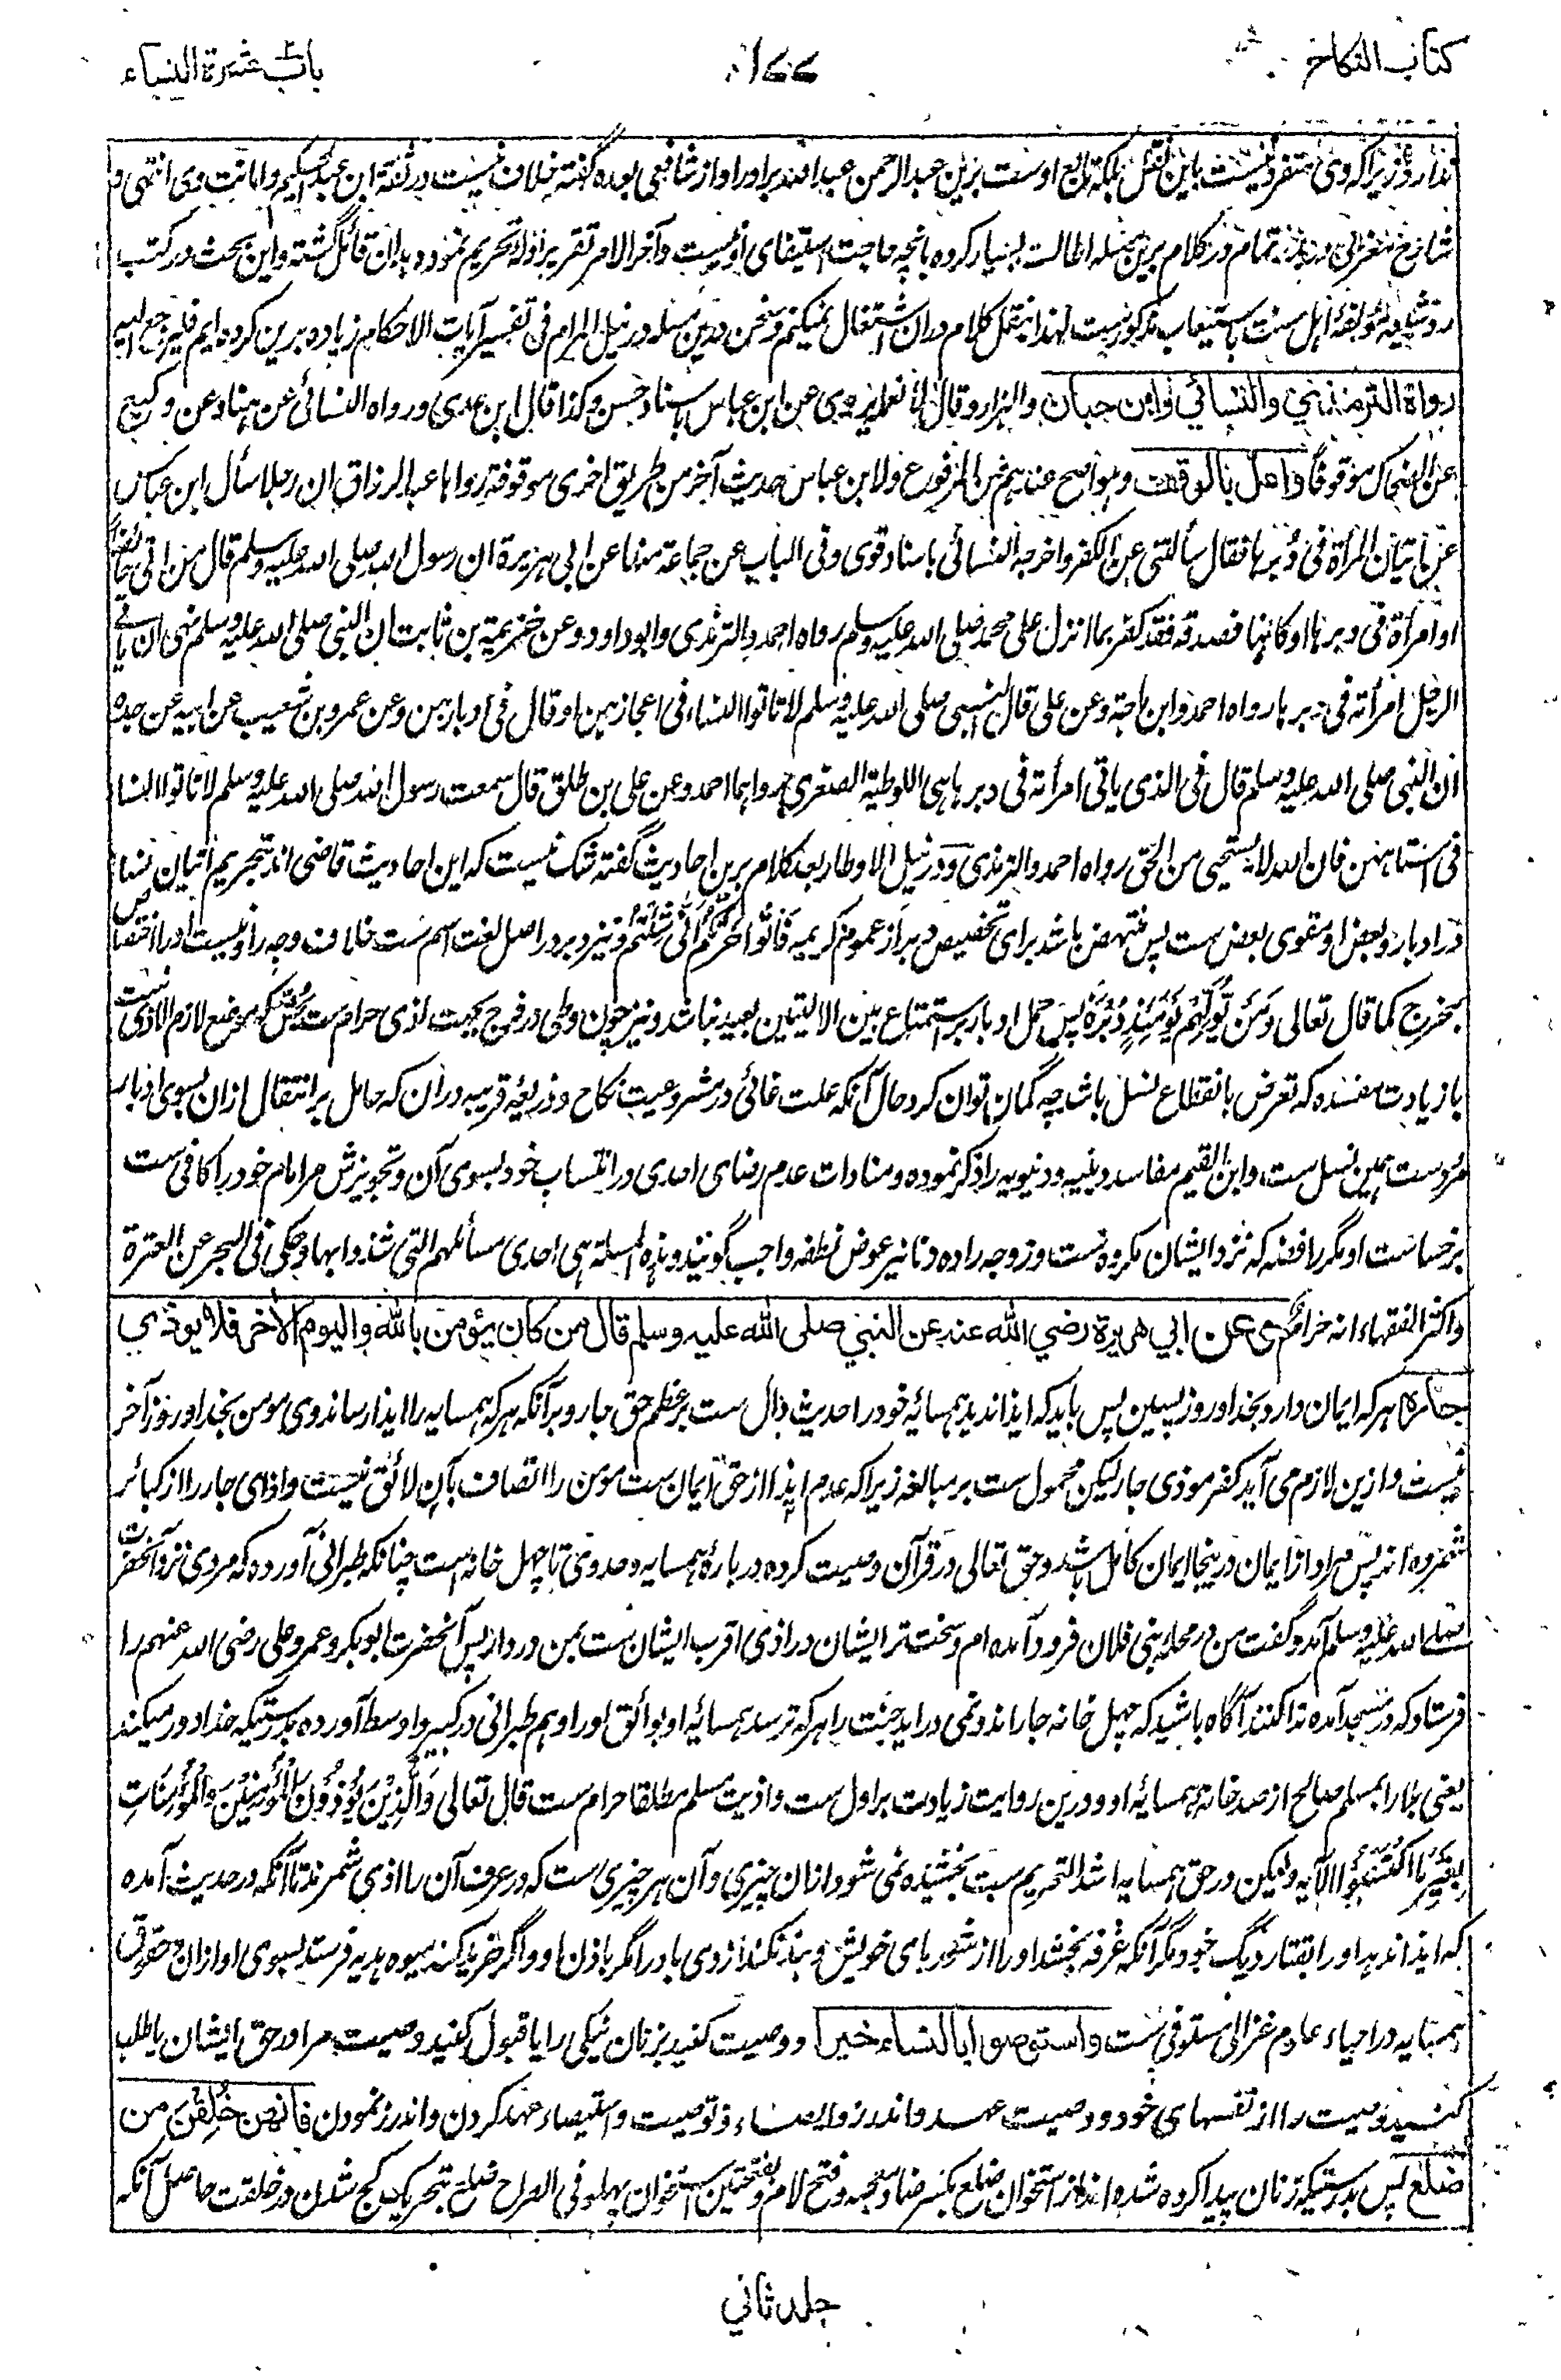 کتاب النکاح
۱۷۷
باب عشرة النساء
ندارد زیراکه وی متفرد نیست باین نقل بلکه تابع اوست برین عبدالرحمن عبدالله برادر او از شافعی بوده گفته خلاف نیست در ثقه ابن عبدالحکیم و امانت وی انتهی و
شارح مغربی در کلام برین مسئله اطالت بسیار کرده بانچه حاجت استیفای او نیست و آخر الامر تقریر ادله تحریم نموده بدان قائل گشته و این بحث در کتب
رد شیعه مؤلفه اهل سنت باستیعاب مذکورست لهذا بنقل کلام دران اشتغال نمیکنم و سخن درین مسئله در نیل المرام فی تفسیر آیات الاحکام زیاده برین کرده ایم فلیرجع الیه
رواه الترمذي والنسائي وابن حبان والبزار وقال لا نعلم یروی عن ابن عباس باسناد حسن وکذا قال ابن عدی ورواه النسائی عن هناد عن وکیع
عن الضحاک موقوفا واعل بالوقف وهو اصح عندهم من المرفوع ولابن عباس حدیث آخر من طریق اخری موقوفة رواها عبدالرزاق ان رجلا سأل ابن عباس
عن اتیان المرأة فی دبرها فقال سألتنی عن الکفر واخرجه النسائی باسناد قوی وفی الباب عن جماعة منها عن ابی هریرة ان رسول الله صلی الله علیه وسلم قال من اتی حائضا
او امرأة فی دبرها او کاهنا فصدقه فقد کفر بما انزل علی محمد صلی الله علیه وسلم رواه احمد والترمذی وابوداود وعن خزیمة بن ثابت ان النبی صلی الله علیه وسلم نهی ان یأتی
الرجل امرأته فی دبرها رواه احمد وابن ماجة وعن علی قال النبی صلی الله علیه وسلم لا تاتوا النساء فی اعجازهن او قال فی ادبارهن وعن عمرو بن شعیب عن ابیه عن جده
ان النبی صلی الله علیه وسلم قال فی الذی یاتی امرأته فی دبرها هی اللوطیة الصغری رواهما احمد وعن علی بن طلق قال سمعت رسول الله صلی الله علیه وسلم لا تاتوا النساء
فی استاههن فان الله لا یستحیی من الحق رواه احمد والترمذی ودر نیل الاوطار بعد کلام برین احادیث گفته شک نیست که این احادیث قاضی اند بتحریم اتیان نساء
در ادبار و بعض او مقوی بعض ست پس منتهض باشد برای تخصیص دبر از عموم کریمه فَأْتُوا حَرْثَكُمْ أَنَّى شِئْتُمْ ونیز دبر در اصل لغت اسم ست خلاف وجه را ونیست او را اختصاص
بمخرج کما قال تعالی وَمَن يُوَلِّهِمْ يَوْمَئِذٍ دُبُرَهُ پس حمل ادبار بر استمتاع بین الالیتین بعید نباشد ونیز چون وطی در فرج بجهت اذی حرام ست حشش که موضع لازم الاذی ست
با زیادت مفسده که تعرض بانقطاع نسل باشد چه گمان توان کرد حال آنکه علت غائی در مشروعیت نکاح و ذریعهٔ قریبه دران که حامل بر انتقال ازان بسوی ادبار
مردست همین نسل ست وابن القیم مفاسد دینیه و دنیویه را ذکر نموده و منادات عدم رضای احدی در انتساب خود بسوی آن و تجویزش مر امام خود را کافی ست
بر خساست او مگر رافضه که نزد ایشان مکروه ست و زوجه را ده دنانیر عوض نطفه واجب گویند وهذه المسئلة هی احدی مسائلهم التی شذوا بها وحکی فی البحر عن العترة
واکثر الفقهاء انه حرام وعن ابي هريرة رضي الله عنه عن النبي صلى الله عليه وسلم قال من كان يؤمن بالله واليوم الآخر فلا يوذي
جاره هر که ایمان دارد بخدا و روز پسین پس باید که ایذا ندهد همسایهٔ خود را حدیث دال ست بر عظم حق جار و بر آنکه هر که همسایه را ایذا رساند وی مومن بخدا و روز آخر
نیست وازین لازم می آید کفر موذی جار لیکن محمول ست بر مبالغه زیرا که عدم ایذا از حق ایمان ست مومن را اتصاف بآن لائق نیست و اذای جار را از کبائر
شمرده اند پس مراد از ایمان درینجا ایمان کامل باشد و حق تعالی در قرآن وصیت کرده دربارهٔ همسایه و حد وی تا چهل خانه است چنانکه طبرانی آورده که مردی نزد آنحضرت
صلی الله علیه وسلم آمد و گفت من در محلهٔ بنی فلان فرود آمده ام و سخت تر ایشان در اذی اقرب ایشان ست بمن در دار پس آنحضرت ابوبکر و عمر و علی رضی الله عنهم را
فرستاد که در مسجد آمده ندا کنند آگاه باشید که چهل خانه جار اند و نمی دراید جنت را هر که ترسد همسایهٔ او بوائق او را وهم طبرانی در کبیر و اوسط آورده بدرستیکه خدا دور میکند
یعنی بلا را بمسلم صالح از صد خانه همسایهٔ او و درین روایت زیادت بر اول ست و اذیت مسلم مطلقا حرام ست قال تعالی وَالَّذِينَ يُؤْذُونَ الْمُؤْمِنِينَ وَالْمُؤْمِنَاتِ
بِغَيْرِ مَا اكْتَسَبُوا الآیه ولیکن در حق همسایه اشد التحریم ست بخشیده نمی شود ازان چیزی و آن هر چیزی ست که در عرف آن را اذی شمرند تا آنکه در حدیث آمده
که ایذا ندهد او را بقتار دیگ خود مگر آنکه غرفه بخشد او را از شوربای خویش و بند نکند از وی باد را مگر باذن او و اگر خرید کند میوه هدیه فرستد بسوی او ازان و حقوق
همسایه در احیاء علوم غزالی مستوفی ست واستوصوا بالنساء خيرا و وصیت کنید بزنان نیکی را یا قبول کنید وصیت مرا در حق ایشان یا طلب
کنید وصیت را از نفسهای خود و وصیت عهد و اندرز و ایصاء و توصیت و استیصاء عهد کردن و اندرز نمودن فانهن خُلِقْنَ من
ضلع پس بدرستیکه زنان پیدا کرده شده اند از استخوان ضلع بکسر ضاد معجمه و فتح لام و بفتحتین استخوان پهلو فی الصراح ضلع بتحریک کج شدن در خلقت حاصل آنکه
جلد ثاني